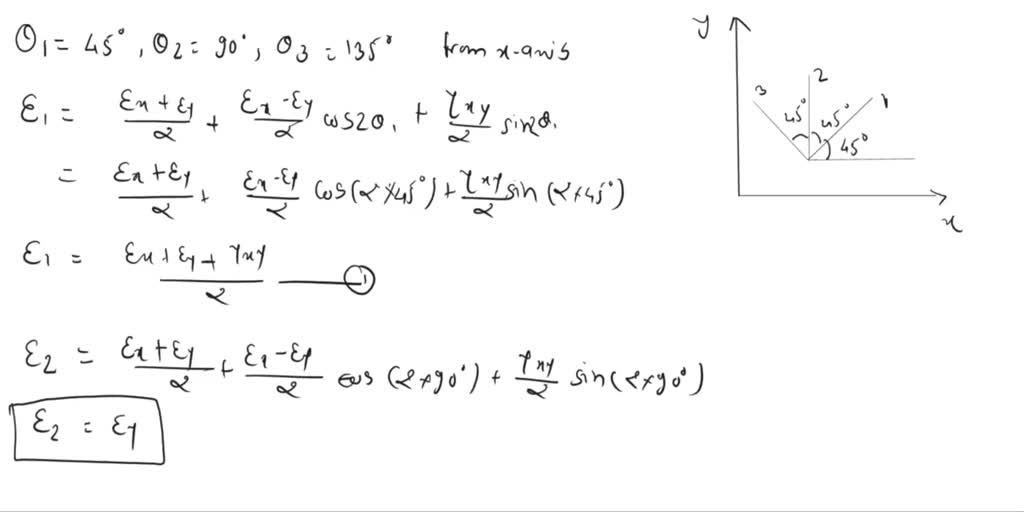 θ₁ = 45°, θ₂ = 90°, θ₃ = 135° from x-axis
ε₁ = (εx + εy)/2 + (εx - εy)/2 cos2θ₁ + γxy/2 sin2θ₁
= (εx + εy)/2 + (εx - εy)/2 cos(2×45°) + γxy/2 sin(2×45°)
ε₁ = (εx + εy + γxy)/2 — ①
ε₂ = (εx + εy)/2 + (εx - εy)/2 cos(2×90°) + γxy/2 sin(2×90°)
ε₂ = εy
y
3
2
1
45°
45°
45°
x